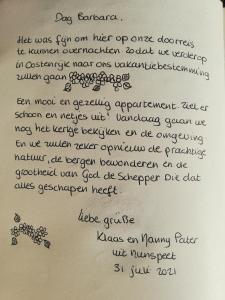 Dag Barbara,
Het was fijn om hier op onze doorreis
te kunnen overnachten zodat we verderop
in Oostenryk naar ons vakantiebestemming
zullen gaan
Een mooi en gezellig appartement. Ziet er
schoon en netjes uit! Vandaag gaan we
nog het kerkje bekijken en de omgeving
En we zullen zeker opnieuw de prachtige
natuur, de bergen bewonderen en de
grootheid van God de Schepper Die dat
alles geschapen heeft.
liebe grüße
Klaas en Nanny Pater
uit Nunspeet
31 juli 2021